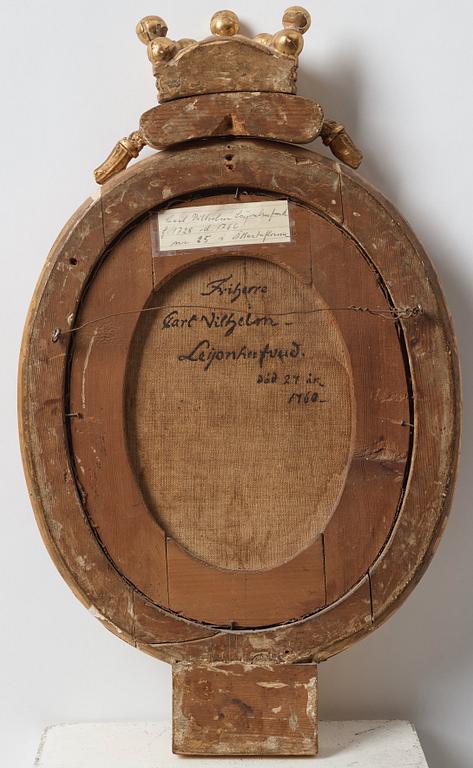 Carl Vilhelm Leijonhufvud
f 1728 d 1760
nr 25 i Ättartaflorna
Friherre
Carl Vilhelm
Leijonhufvud.
död 27 år
1760